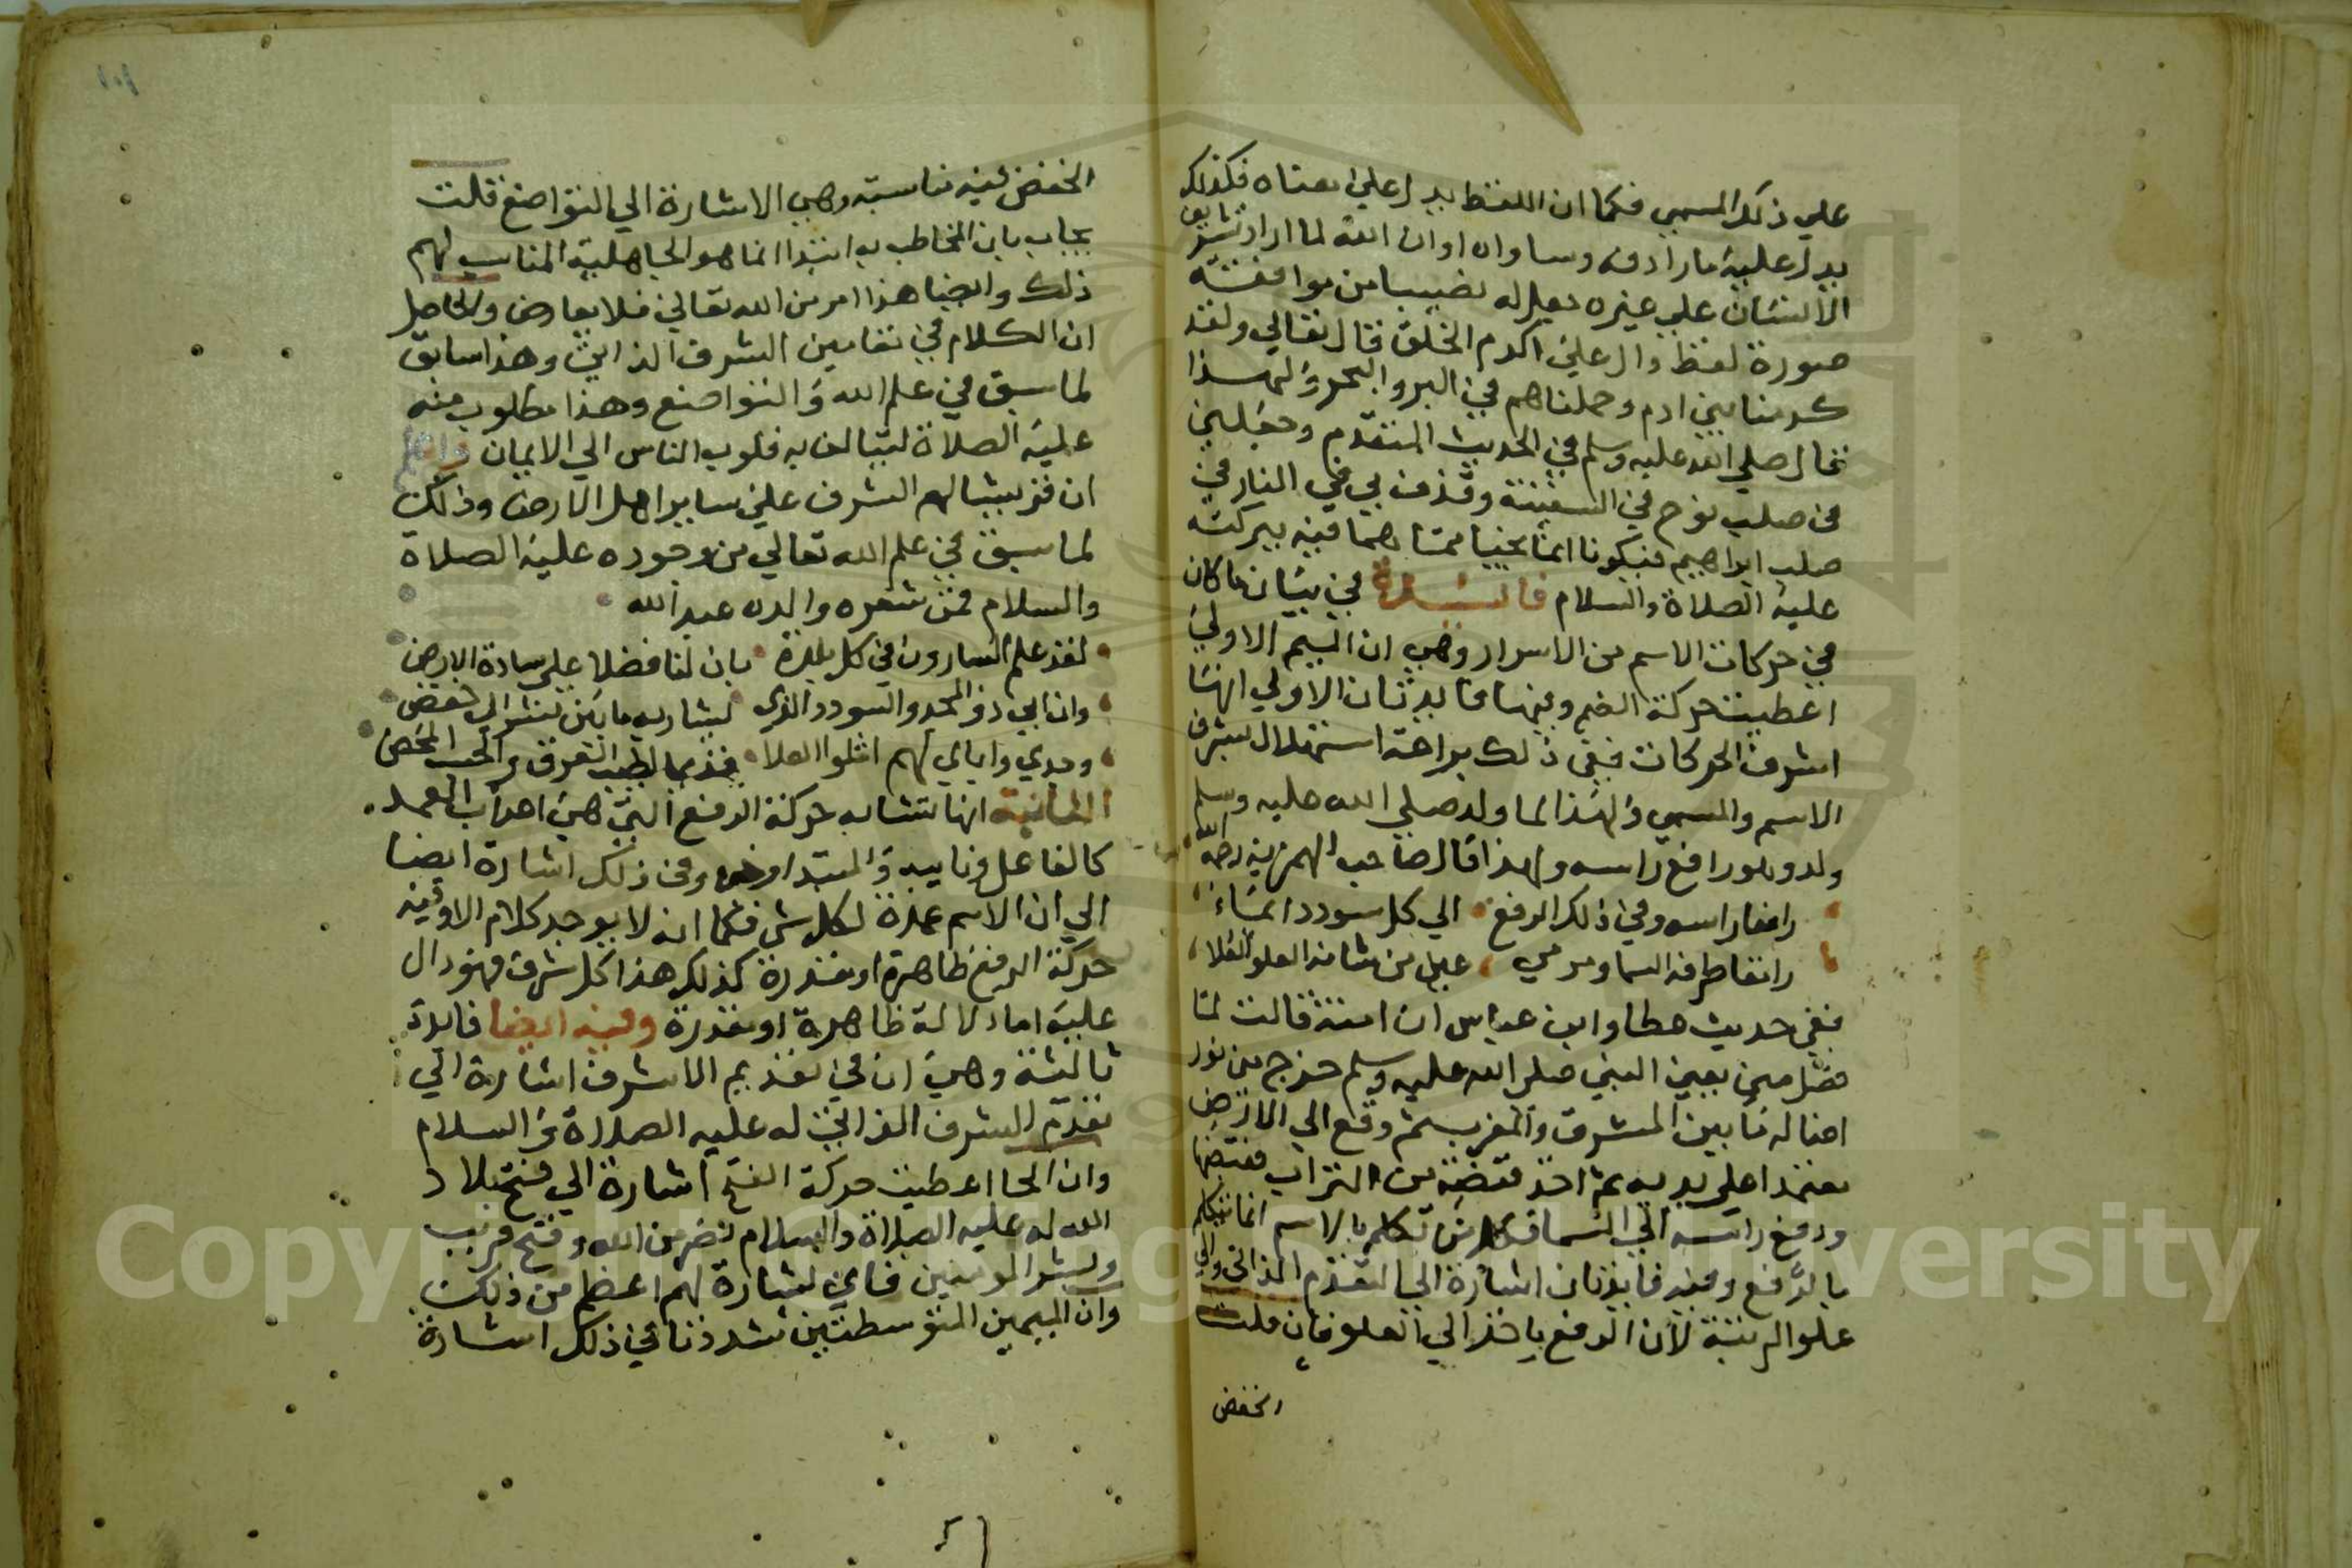 علي ذلك المسمي فكما ان اللفظ يدل علي معناه فكذلك
يدل عليه ما رادفه وساواه او ان الله لما اراد تشريف
الانسان علي غيره جعل له نصيبا من موافقته
صورة لفظ دال علي اكرم الخلق قال تعالي ولقد
كرمنا بني ادم وحملناهم في البر والبحر ولهذا
قال صلي الله عليه وسلم في الحديث المتقدم وجعلني
في صلب نوح في السفينة وقذف بي في النار في
صلب ابراهيم فيكونا انما نجيا مما هما فيه ببركته
عليه الصلاة والسلام في بيان ما كان
في حركات الاسم من الاسرار وهي ان الميم الاولي
اعطيت حركة الضم وفيها فايدتان الاولي انها
اشرف الحركات ففي ذلك براعة استهلال بشرف
الاسم والمسمي ولهذا لما ولد صلي الله عليه وسلم
ولد وهو رافع راسه ولهذا قال صاحب الهمزية رحمه الله
رافعا راسه وفي ذلك الرفع الي كل سودد ايماء
رامقا طرفه السما ومرمي عين من شانه العلو العلاء
ففي حديث عطا وابن عباس ان امنة قالت لما
فصل مني يعني النبي صلي الله عليه وسلم خرج معه نور
اضا له ما بين المشرق والمغرب ثم وقع الي الارض
معتمدا علي يديه ثم اخذ قبضة من التراب فقبضها
ورفع راسه الي السما فكل من تكلم بالاسم انما يتكلم
بالرفع وفيه فايدتان اشارة الي التقدم الذاتي والي
علو الرتبة لان الرفع ياخذ الي العلو فان قلت
الخفض
١٠١
الخفض فيه مناسبة وهي الاشارة الي التواضع قلت
يجاب بان المخاطب به ابتدا انما هو الجاهلية المناسب لهم
ذلك وايضا هذا امر من الله تعالي فلا يعارض والحاصل
ان الكلام في تقامين الشرف الذاتي وهذا سابق
لما سبق في علم الله والتواضع وهذا مطلوب منه
عليه الصلاة ليتالف به قلوب الناس الي الايمان واعلم
ان قريشا لهم الشرف علي ساير اهل الارض وذلك
لما سبق في علم الله تعالي من وجوده عليه الصلاة
والسلام فمن شعره والده عبد الله
لقد علم السارون في كل بلدة بان لنا فضلا علي سادة الارض
وان ابي ذو المجد والسودد الذي يشار به ما بين نشز الي خفض
وجدي واباي لهم اثلوا العلا قديما لطيب العرق والحسب المحض
الثانية انها تشابه حركة الرفع التي هي اعراب العمد
كالفاعل ونايبه والمبتدا وخبره وفي ذلك اشارة ايضا
الي ان الاسم عمدة لكل شي فكما انه لا يوجد كلام الا وفيه
حركة الرفع ظاهرة او مقدرة كذلك هذا كل شرف فهو دال
عليه اما دلالة ظاهرة او مقدرة وفيه ايضا فايدة
ثالثة وهي ان في تقديم الاشرف اشارة الي
تقدم الشرف الذاتي له عليه الصلاة والسلام
وان الحا اعطيت حركة الفتح اشارة الي فتح بلاد
الله له عليه الصلاة والسلام نصر من الله وفتح قريب
وبشر المومنين فاي بشارة لهم اعظم من ذلك
وان الميمين المتوسطتين شددتا في ذلك اشارة
Copyright © King Saud University